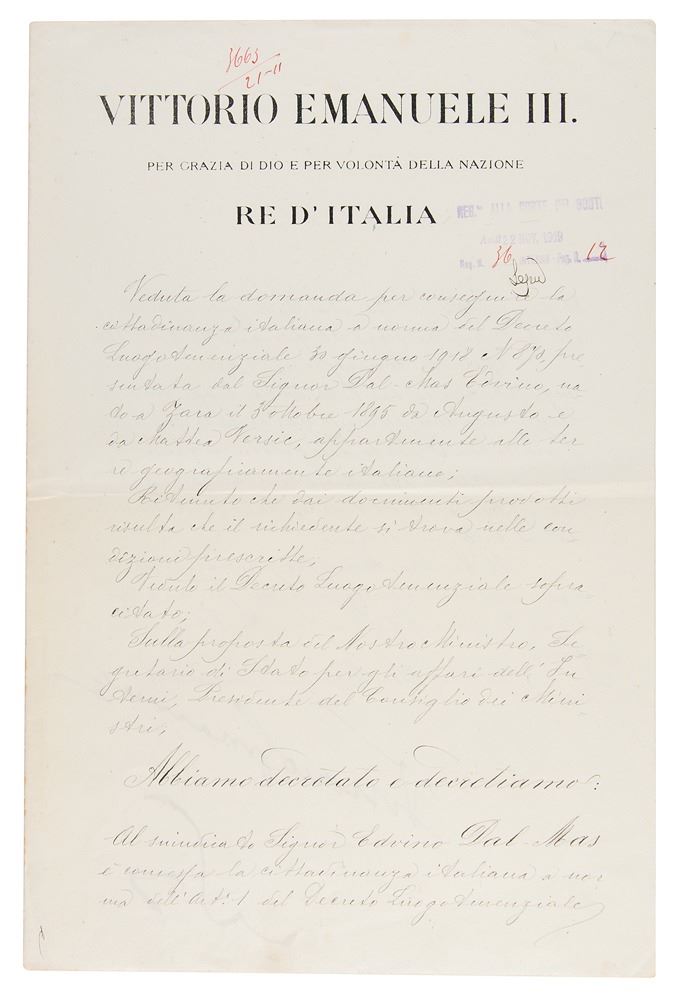 3663
21-11
VITTORIO EMANUELE III.
PER GRAZIA DI DIO E PER VOLONTÀ DELLA NAZIONE
RE D'ITALIA
REG.to ALLA CORTE DEI CONTI
Addì 22 NOV. 1919
Reg. N. 36 Pag. N. 12
Veduta la domanda per conseguire la
cittadinanza italiana a norma del Decreto
Luogotenenziale 30 giugno 1918 N 870, pre-
sentata dal Signor Dal-Mas Edvino, na-
to a Zara il 3 ottobre 1895 da Augusto e
da Mattea Versic, appartenente alle ter-
re geograficamente italiane;
Ritenuto che dai documenti prodotti
risulta che il richiedente si trova nelle con-
dizioni prescritte;
Veduto il Decreto Luogotenenziale sopra-
citato;
Sulla proposta del Nostro Ministro, Se-
gretario di Stato per gli affari dell'In-
terni, Presidente del Consiglio dei Mini-
stri;
Abbiamo decretato e decretiamo:
Al suindicato Signor Edvino Dal-Mas
è concessa la cittadinanza italiana a nor-
ma dell'Art. 1 del Decreto Luogotenenziale